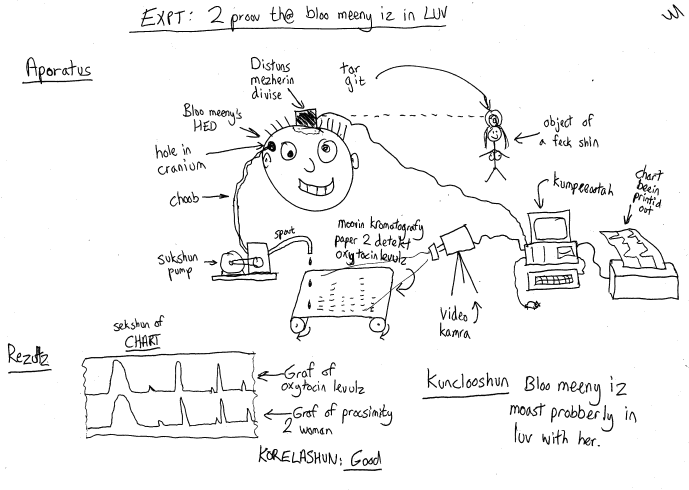 EXPT: 2 proov th@ bloo meeny iz in LUV
Aporatus
Distuns
mezherin
divise
tar
git
Bloo meeny's
HED
hole in
cranium
choob
sukshun
pump
spout
object of
a feck shin
moovin kromatografy
paper 2 detekt
oxytocin levulz
kumpeeootah
chart
beein
printid
out
video
kamra
Rezultz
sekshun of
CHART
Graf of
oxytocin levulz
Graf of procsimity
2 woman
KORELASHUN: Good
Kunclooshun Bloo meeny iz
moast probberly in
luv with her.